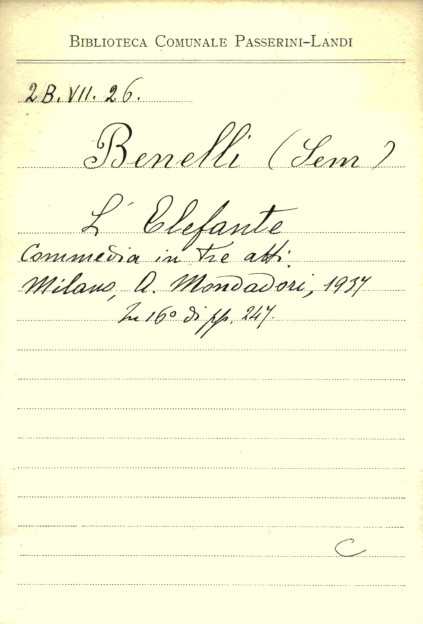 BIBLIOTECA COMUNALE PASSERINI-LANDI
2B.VII.26.
Benelli (Sem)
L'Elefante
Commedia in tre atti.
Milano, A. Mondadori, 1937
In 16° di pp. 247.
C